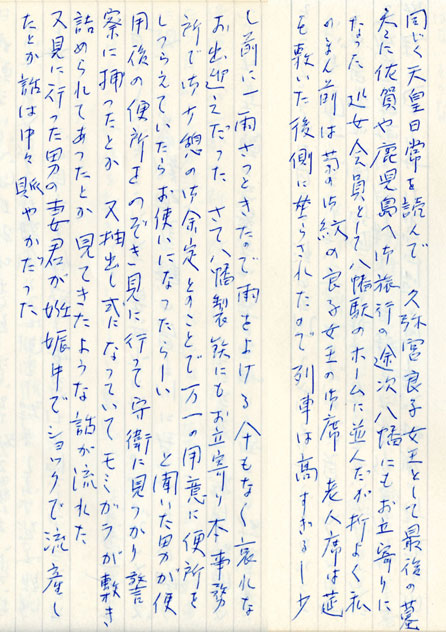 同じく天皇日常を読んで 久弥宮良子女王として最後の墓
参に佐賀や鹿児島へ御旅行の途次八幡にもお立寄りに
なった 処女会員として八幡駅のホームに並んだが折よく私
のまん前は菊の御紋の良子女王の御席 老人席は莚
を敷いた後側に坐らされたので列車は高すぎるし少
し前に一雨さっときたので雨をよける傘もなく哀れな
お出迎えだった さて八幡製鉄にもお立寄り本事務
所で御少憩の御予定とのことで万一の用意に便所を
しつらえていたらお使いになったらしい と聞いた男が便
用後の便所をのぞき見に行って守衛に見つかり警
察に捕ったとか 又抽出し式になっていてモミガラが敷き
詰められてあったとか 見てきたような話が流れた
又見に行った男の妻君が妊娠中でショックで流産し
たとか話は中々賑やかだった